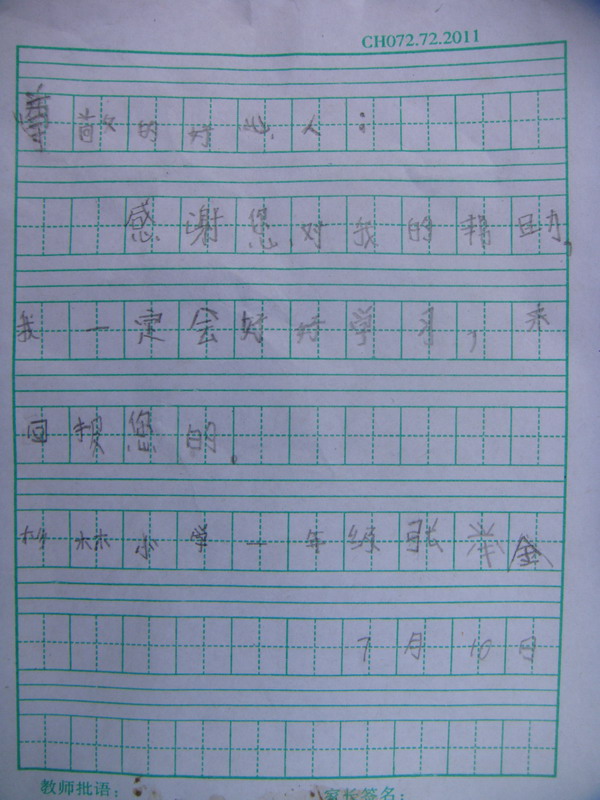 CH072.72.2011
敬的好心人：
感谢您对我的帮助，
我一定会好好学习，来
回报您的。
杉林小学一年级张举金
7月10日
教师批语：
家长签名：